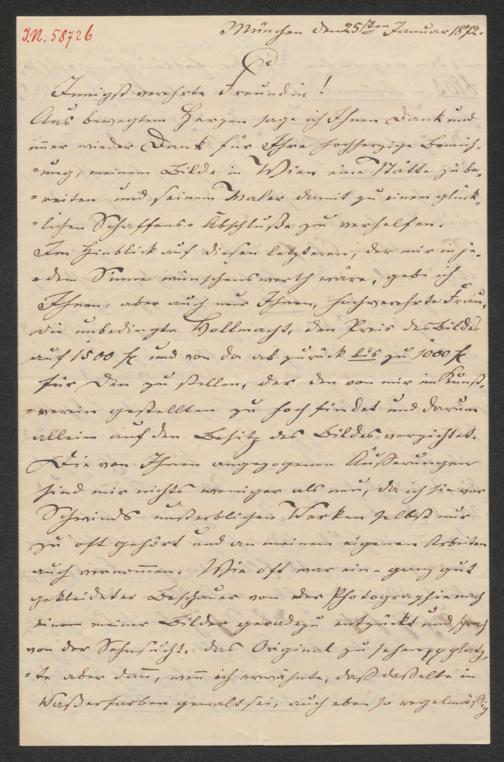 I.N. 58726
München den 25sten Januar 1872.
Innigst verehrte Freundin!
Aus bewegtem Herzen sage ich Ihnen Dank und
immer wieder Dank für Ihre hochherzige Bemüh-
-ung, meinem Bilde in Wien eine Stätte zu be-
-reiten und seinem Maler damit zu einem glück-
-lichen Schaffens-Abschluße zu verhelfen.
Im Hinblick auf diesen letzteren, der mir in je-
-dem Sinne wünschenswerth wäre, gebe ich
Ihnen, aber auch nur Ihnen, hochverehrte Frau,
die unbedingte Vollmacht, den Preis des Bildes
auf 1500 fl und von da ab zurück bis zu 1000 fl
für den zu stellen, der den von mir im Kunst-
-verein gestellten zu hoch findet und darum
allein auf den Besitz des Bildes verzichtet.
Die von Ihnen angezogenen Äußerungen
sind mir nichts weniger als neu, da ich sie vor
Schwinds unsterblichen Werken selbst nur
zu oft gehört und an meinen eigenen Arbeiten
auch vernommen. Wie oft war ein ganz gut
gekleideter Beschauer von der Photographie nach
einem meiner Bilder geradezu entzückt und sprach
von der Sehnsucht, das Original zu sehen, platz-
-te aber dann, wenn ich erwähnte, daß dasselbe in
Waßerfarben gemalt sei, auch eben so regelmäßig